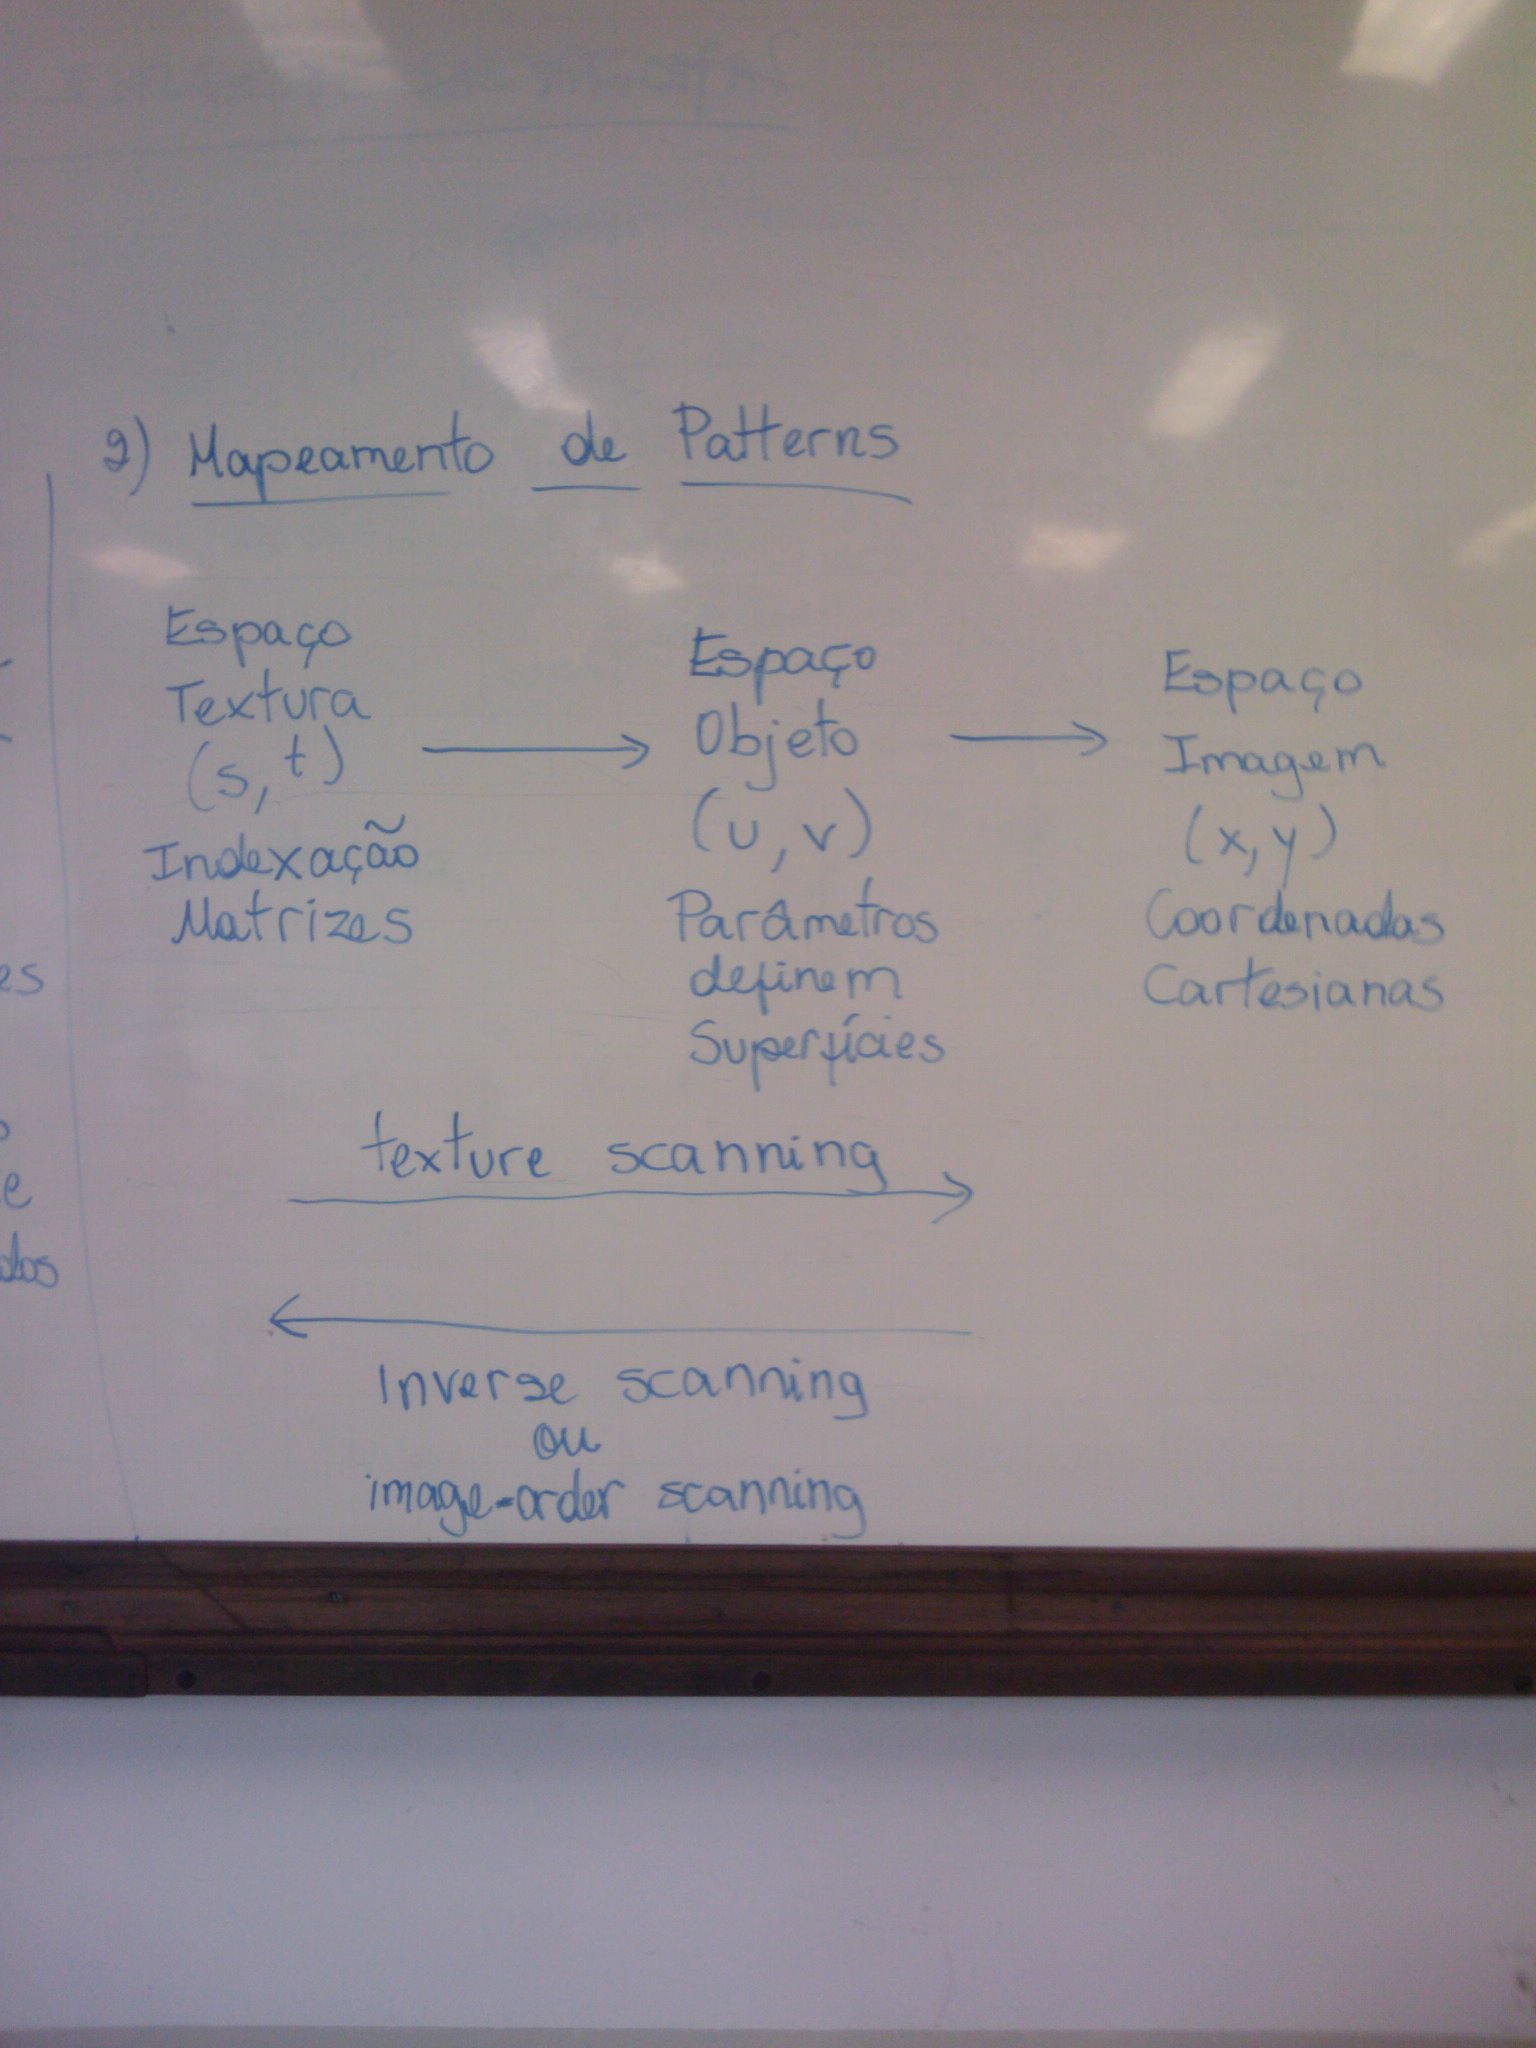 2) Mapeamento de Patterns
Espaço
Textura
(s, t)
Indexação
Matrizes
Espaço
Objeto
(u, v)
Parâmetros
definem
Superfícies
Espaço
Imagem
(x, y)
Coordenadas
Cartesianas
texture scanning
Inverse scanning
ou
image-order scanning
es
e
dos